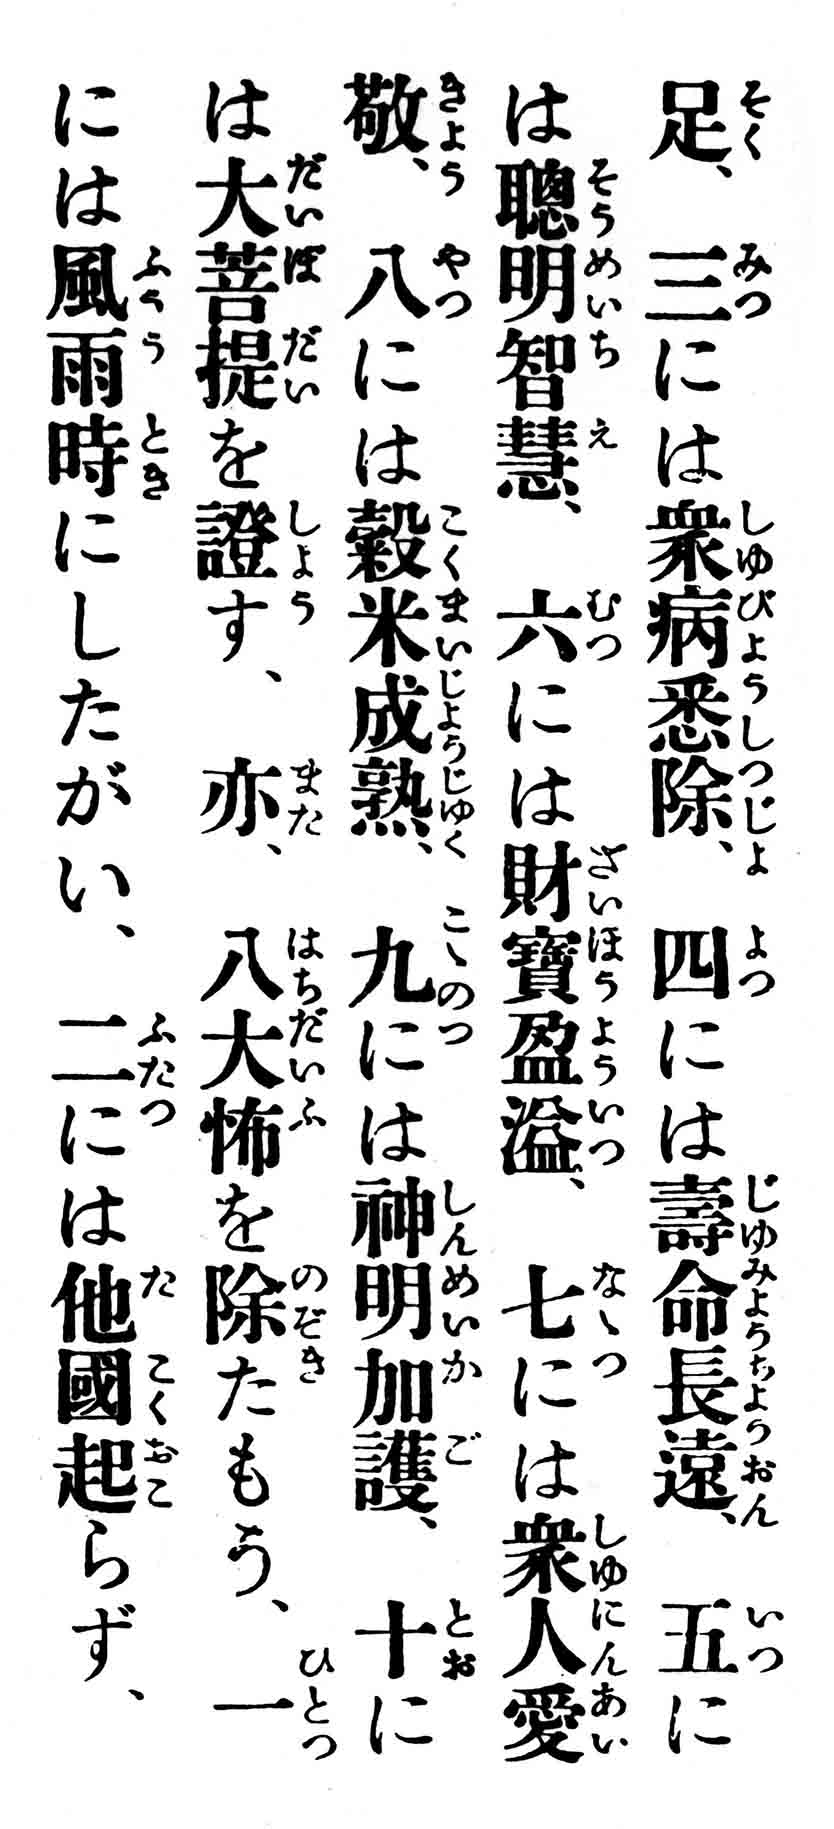 足、三には衆病悉除、四には壽命長遠、五に
は聰明智慧、六には財寶盈溢、七には衆人愛
敬、八には穀米成熟、九には神明加護、十に
は大菩提を證す、亦、八大怖を除たもう、一
には風雨時にしたがい、二には他國起らず、